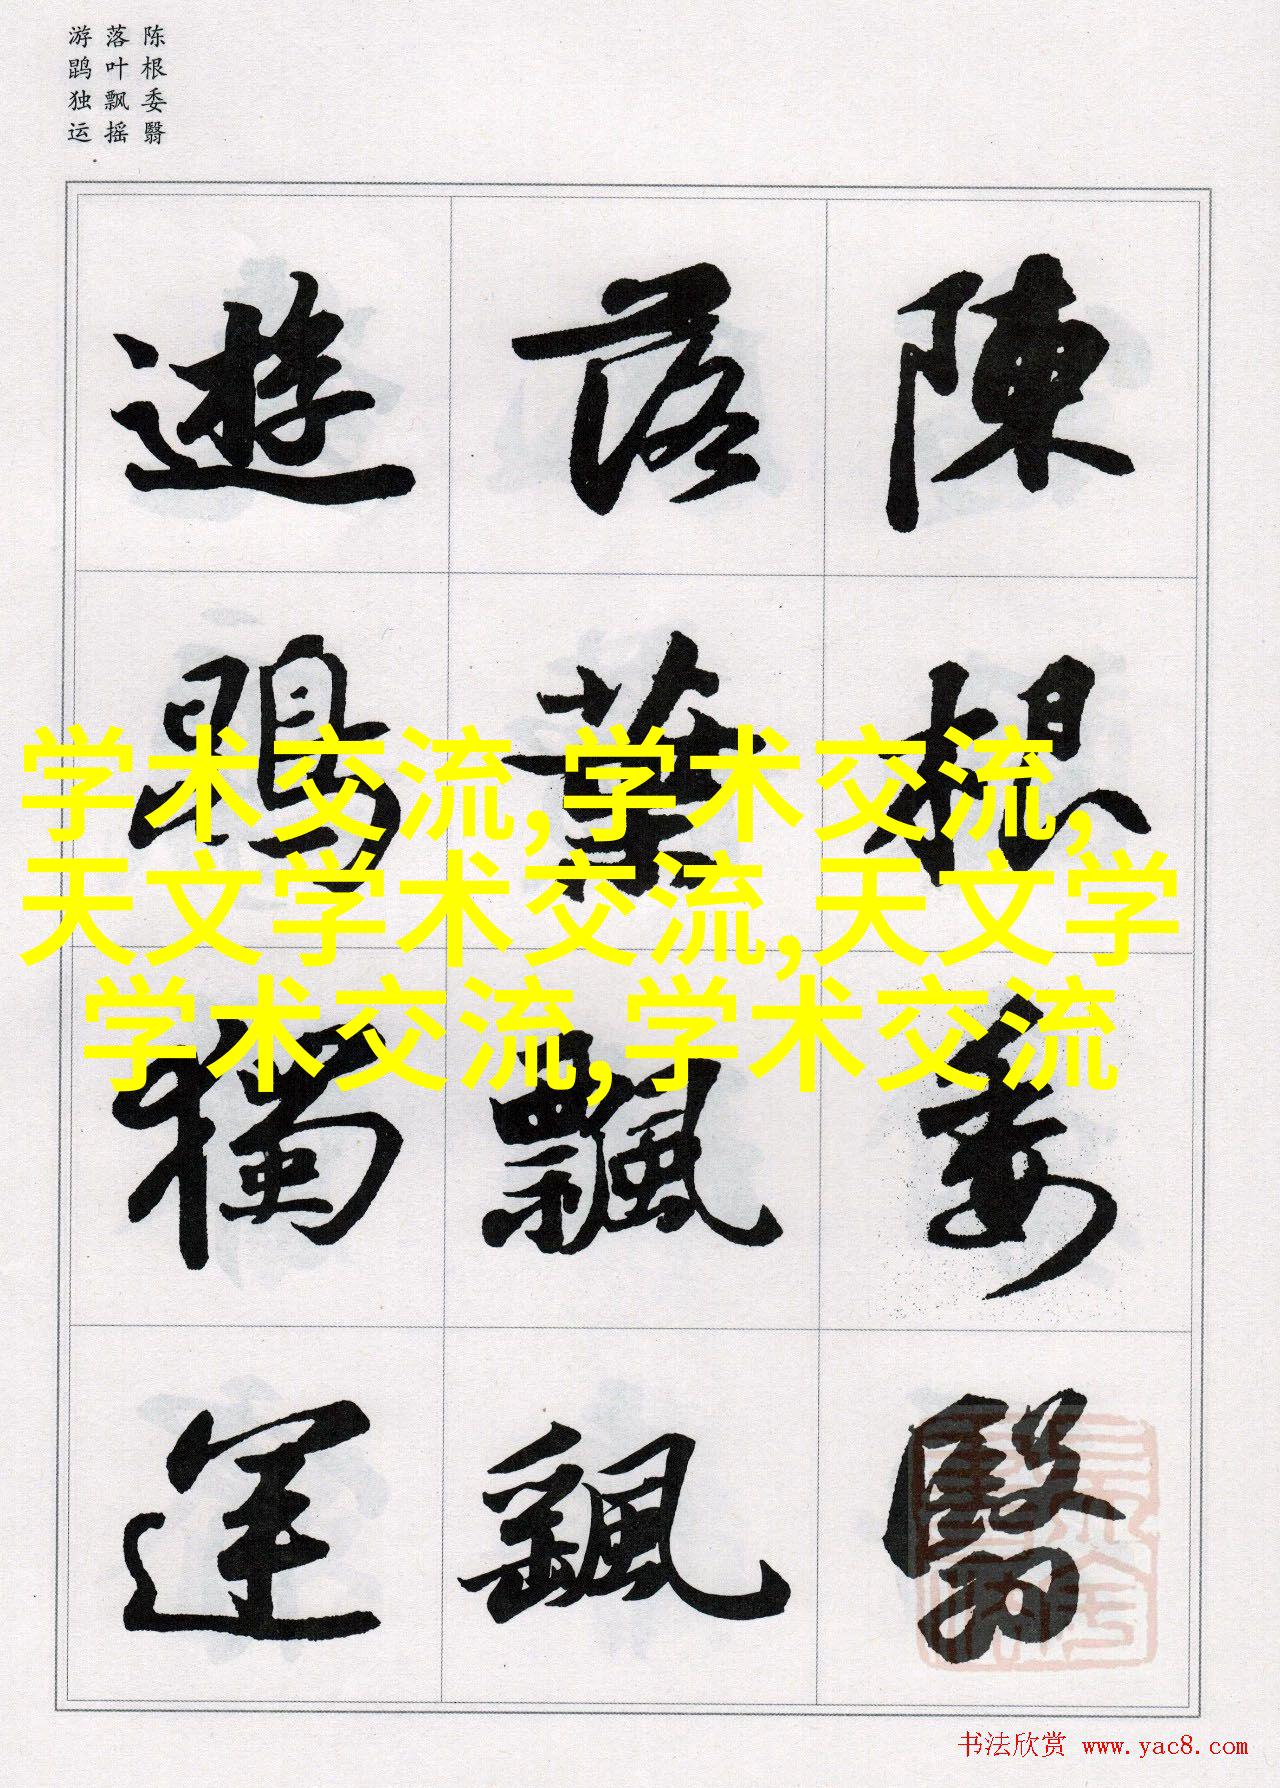 陈根委翳
落叶飘摇
游鹍独运
陳根委翳
落葉飄颻
遊鵾獨運
学术交流,学术交流,
天文学术交流,天文学
学术交流,学术交流
书法欣赏 www.yac8.com